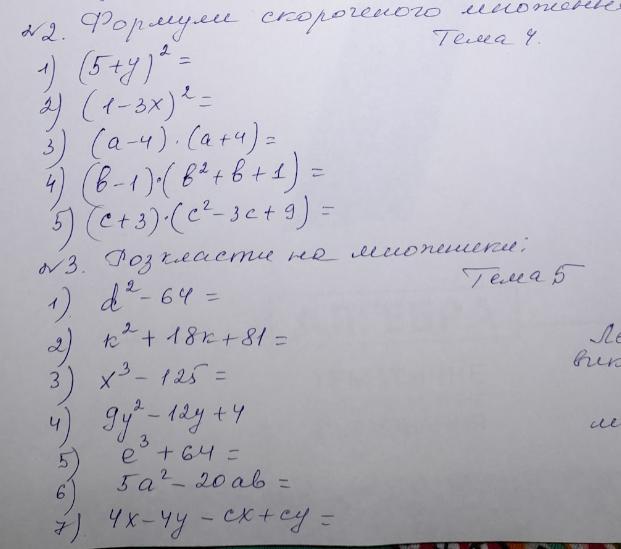 №2. Формули скороченого множення
Тема 4.
1) (5+y)² =
2) (1-3x)² =
3) (a-4)·(a+4) =
4) (в-1)·(в²+в+1) =
5) (c+3)·(c²-3c+9) =
№3. Розкласти на множники:
Тема 5
1) d²-64 =
2) к²+18к+81 =
3) x³-125 =
4) 9y²-12y+4
5) e³+64 =
6) 5a²-20ab =
7) 4x-4y-cx+cy =